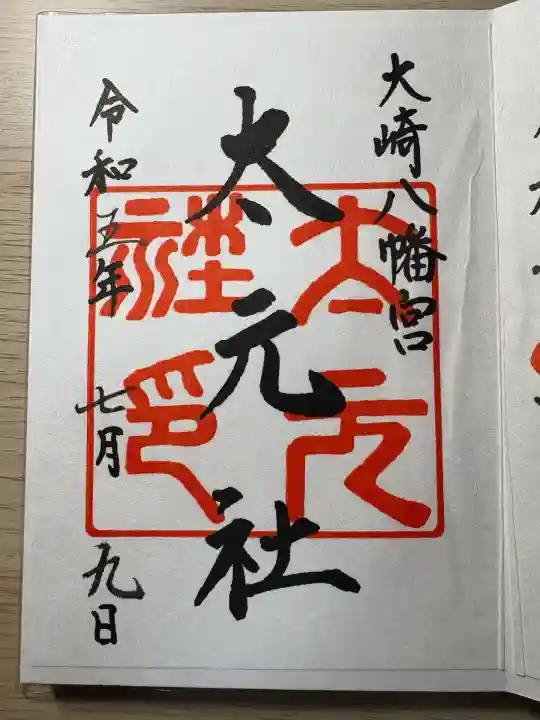 大崎八幡宮
太元社
太元社印
令和五年
七月
九日